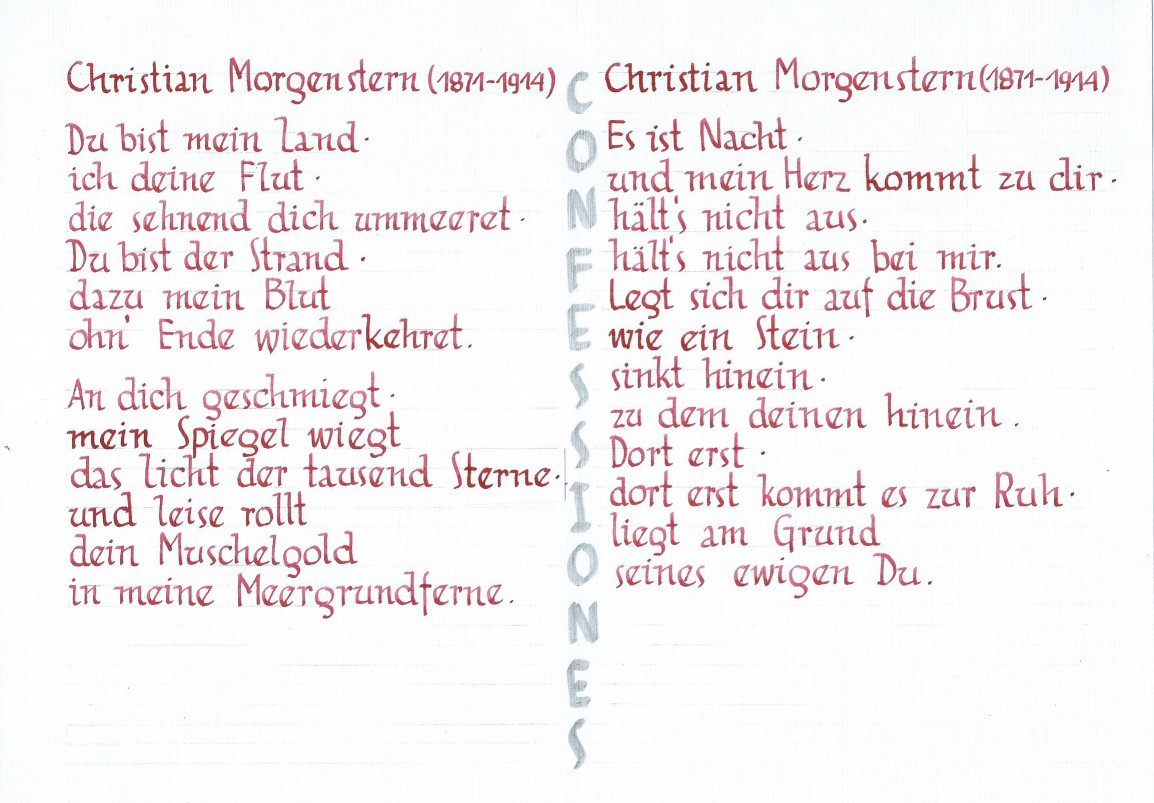 Christian Morgenstern (1871-1914)
Du bist mein Land·
ich deine Flut·
die sehnend dich ummeeret·
Du bist der Strand·
dazu mein Blut
ohn' Ende wiederkehret.
An dich geschmiegt·
mein Spiegel wiegt
das Licht der tausend Sterne·
und leise rollt
dein Muschelgold
in meine Meergrundferne.
CONFESSIONES
Christian Morgenstern (1871-1914)
Es ist Nacht·
und mein Herz kommt zu dir·
hält's nicht aus·
hält's nicht aus bei mir.
Legt sich dir auf die Brust·
wie ein Stein·
sinkt hinein·
zu dem deinen hinein.
Dort erst·
dort erst kommt es zur Ruh·
liegt am Grund
seines ewigen Du.